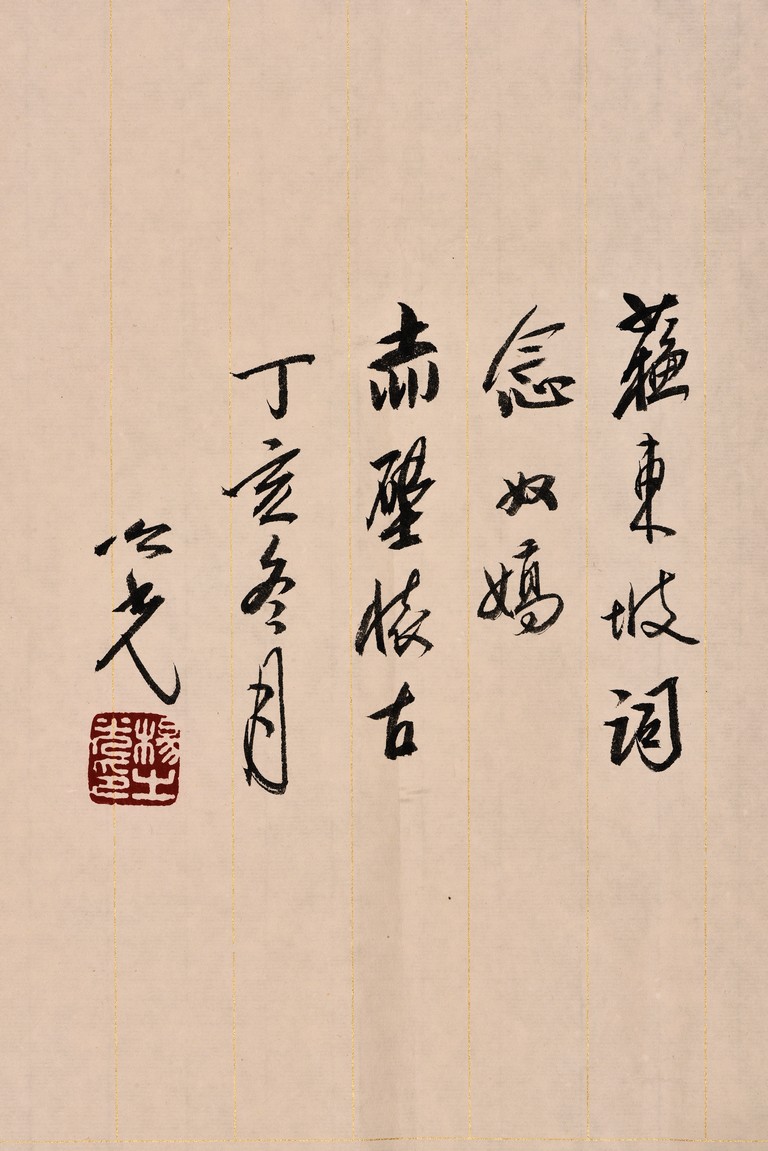 蘇東坡詞
念奴嬌
赤壁懷古
丁亥冬月